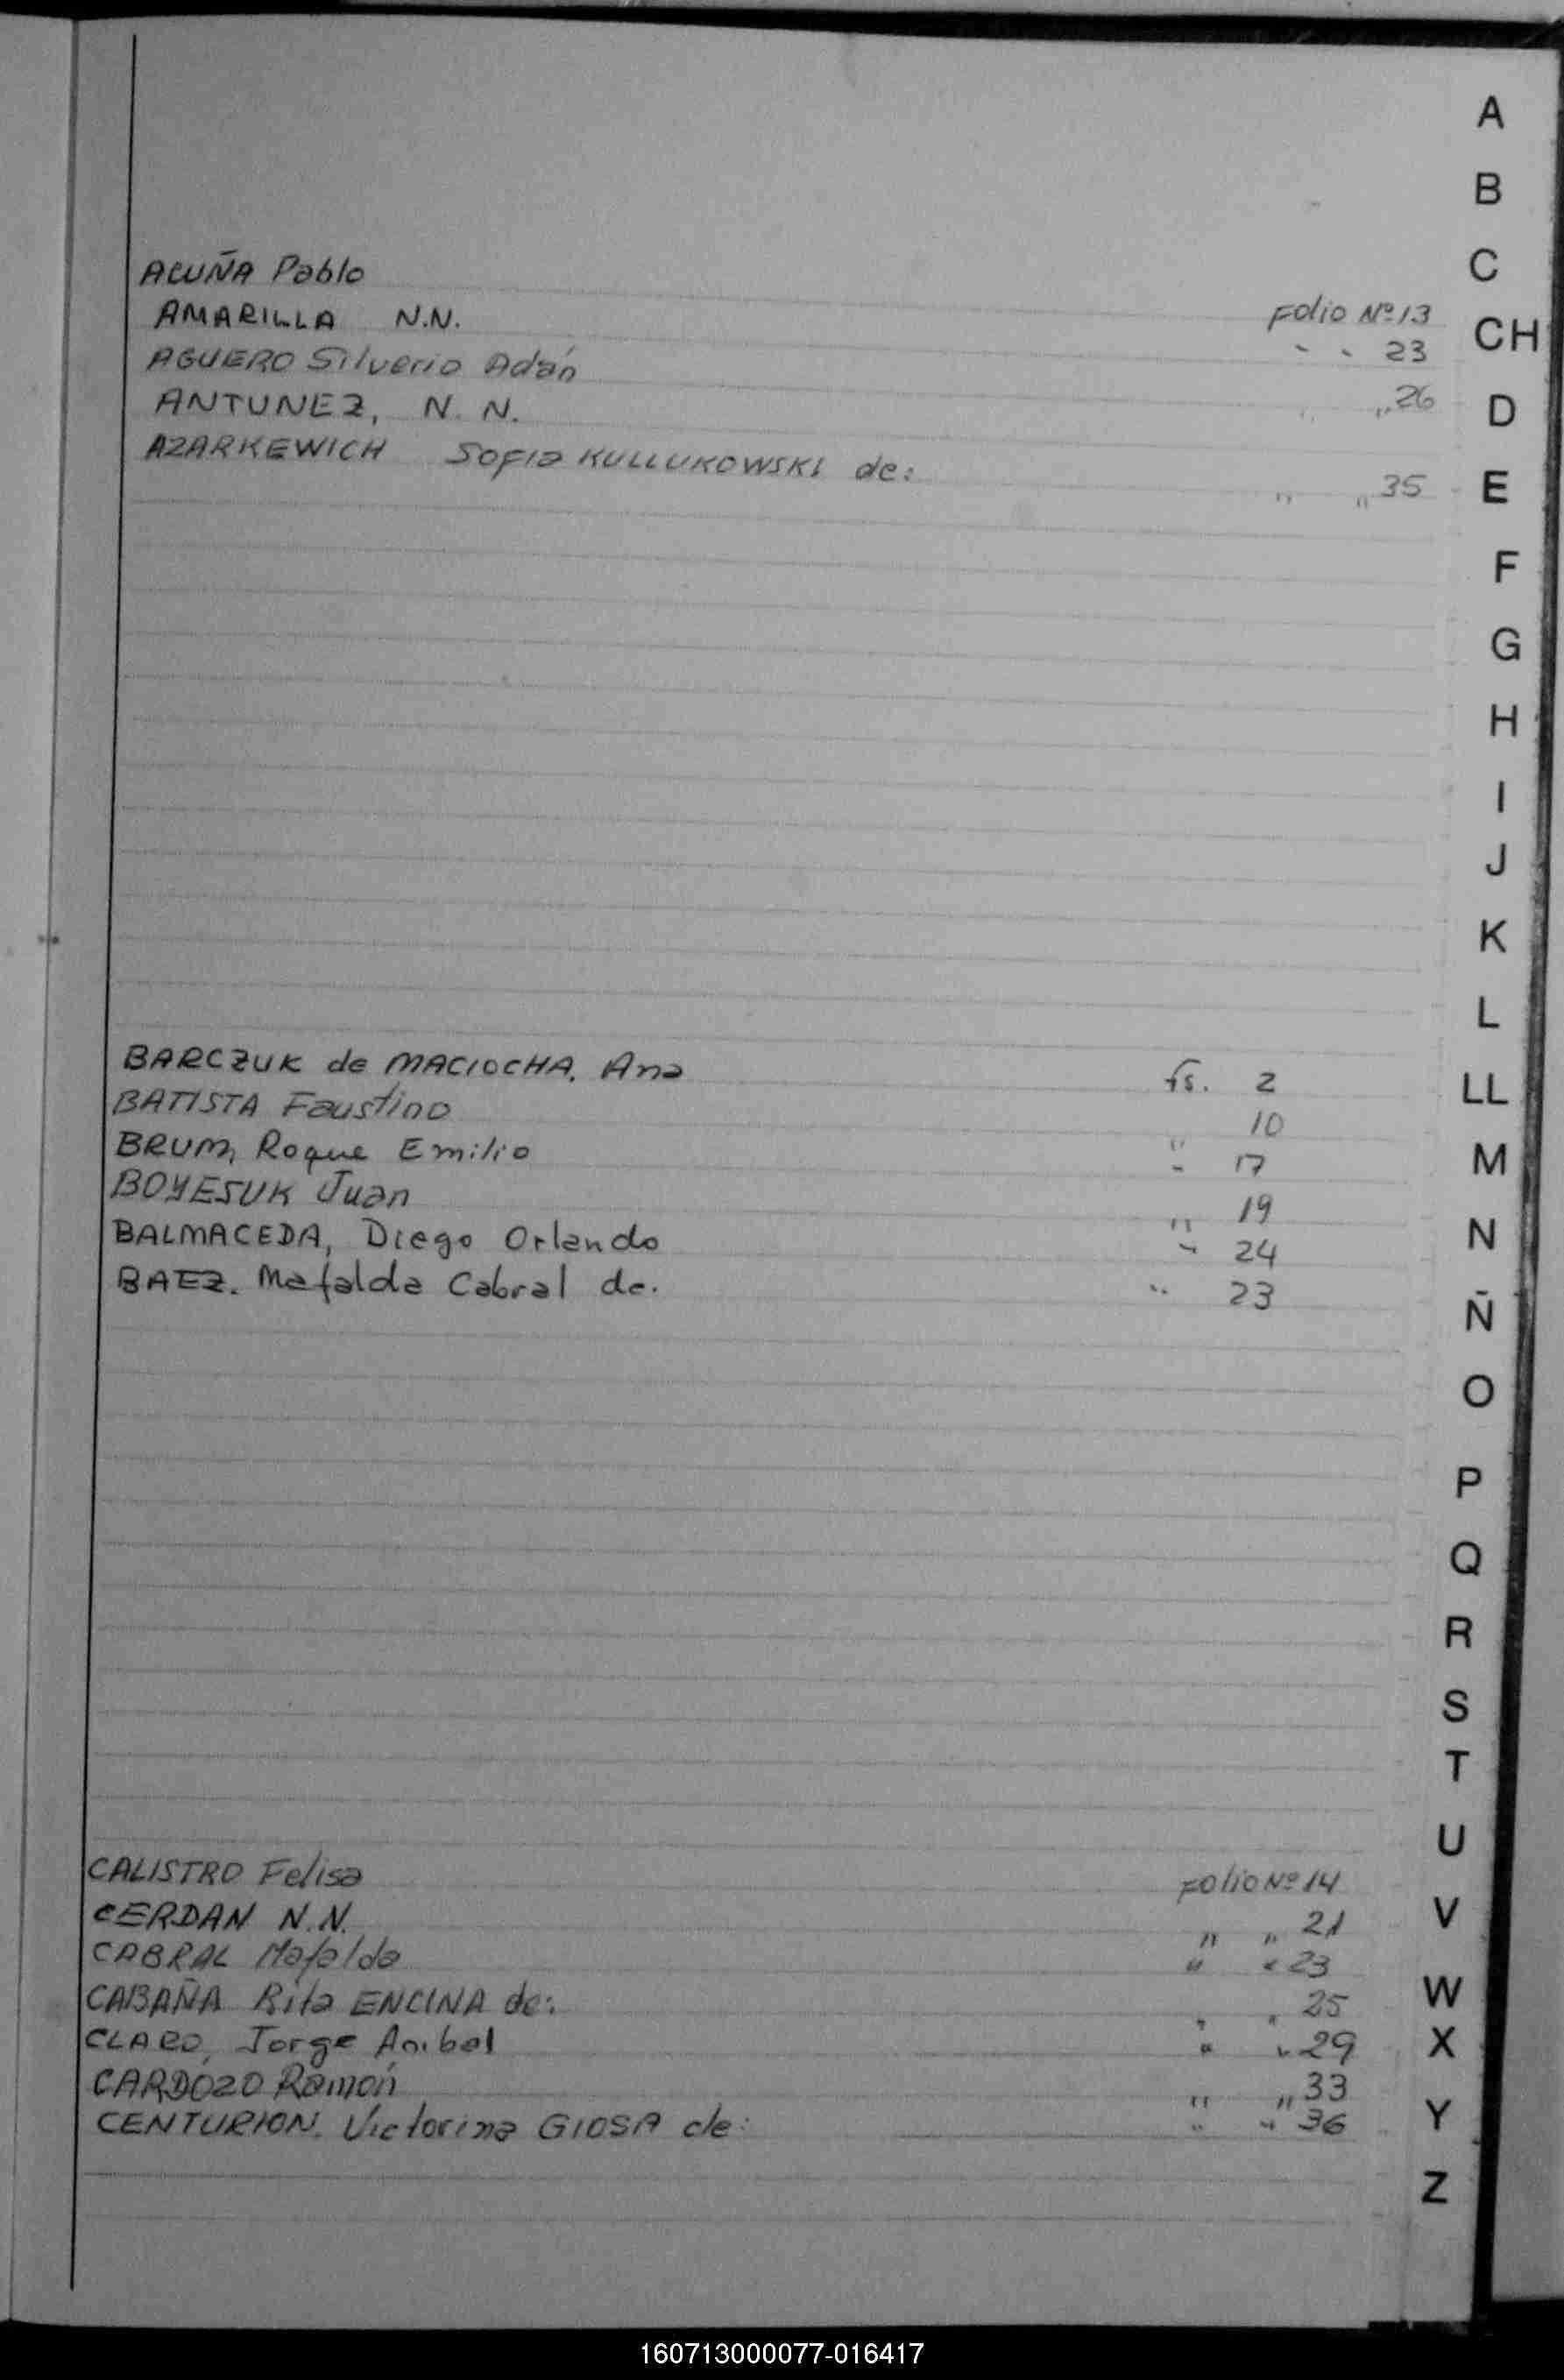 ACUÑA Pablo Folio Nº 13
AMARILLA N.N. " " 23
AGUERO Silverio Adán " " 26
ANTUNEZ, N. N.
AZARKEWICH Sofia KULLUKOWSKI de: " " 35
BARCZUK de MACIOCHA. Ana fs. 2
BATISTA Faustino " 10
BRUM, Roque Emilio " 17
BOYESUK Juan " 19
BALMACEDA, Diego Orlando " 24
BAEZ. Mafalda Cabral de. " 23
CALISTRO Felisa FOLIO Nº 14
CERDAN N.N. " " 21
CABRAL Mafalda " " 23
CABAÑA Rita ENCINA de: " " 25
CLARO, Jorge Anibal " " 29
CARDOZO Ramón " " 33
CENTURION. Victorina GIOSA de: " " 36
A
B
C
CH
D
E
F
G
H
I
J
K
L
LL
M
N
Ñ
O
P
Q
R
S
T
U
V
W
X
Y
Z
160713000077-016417